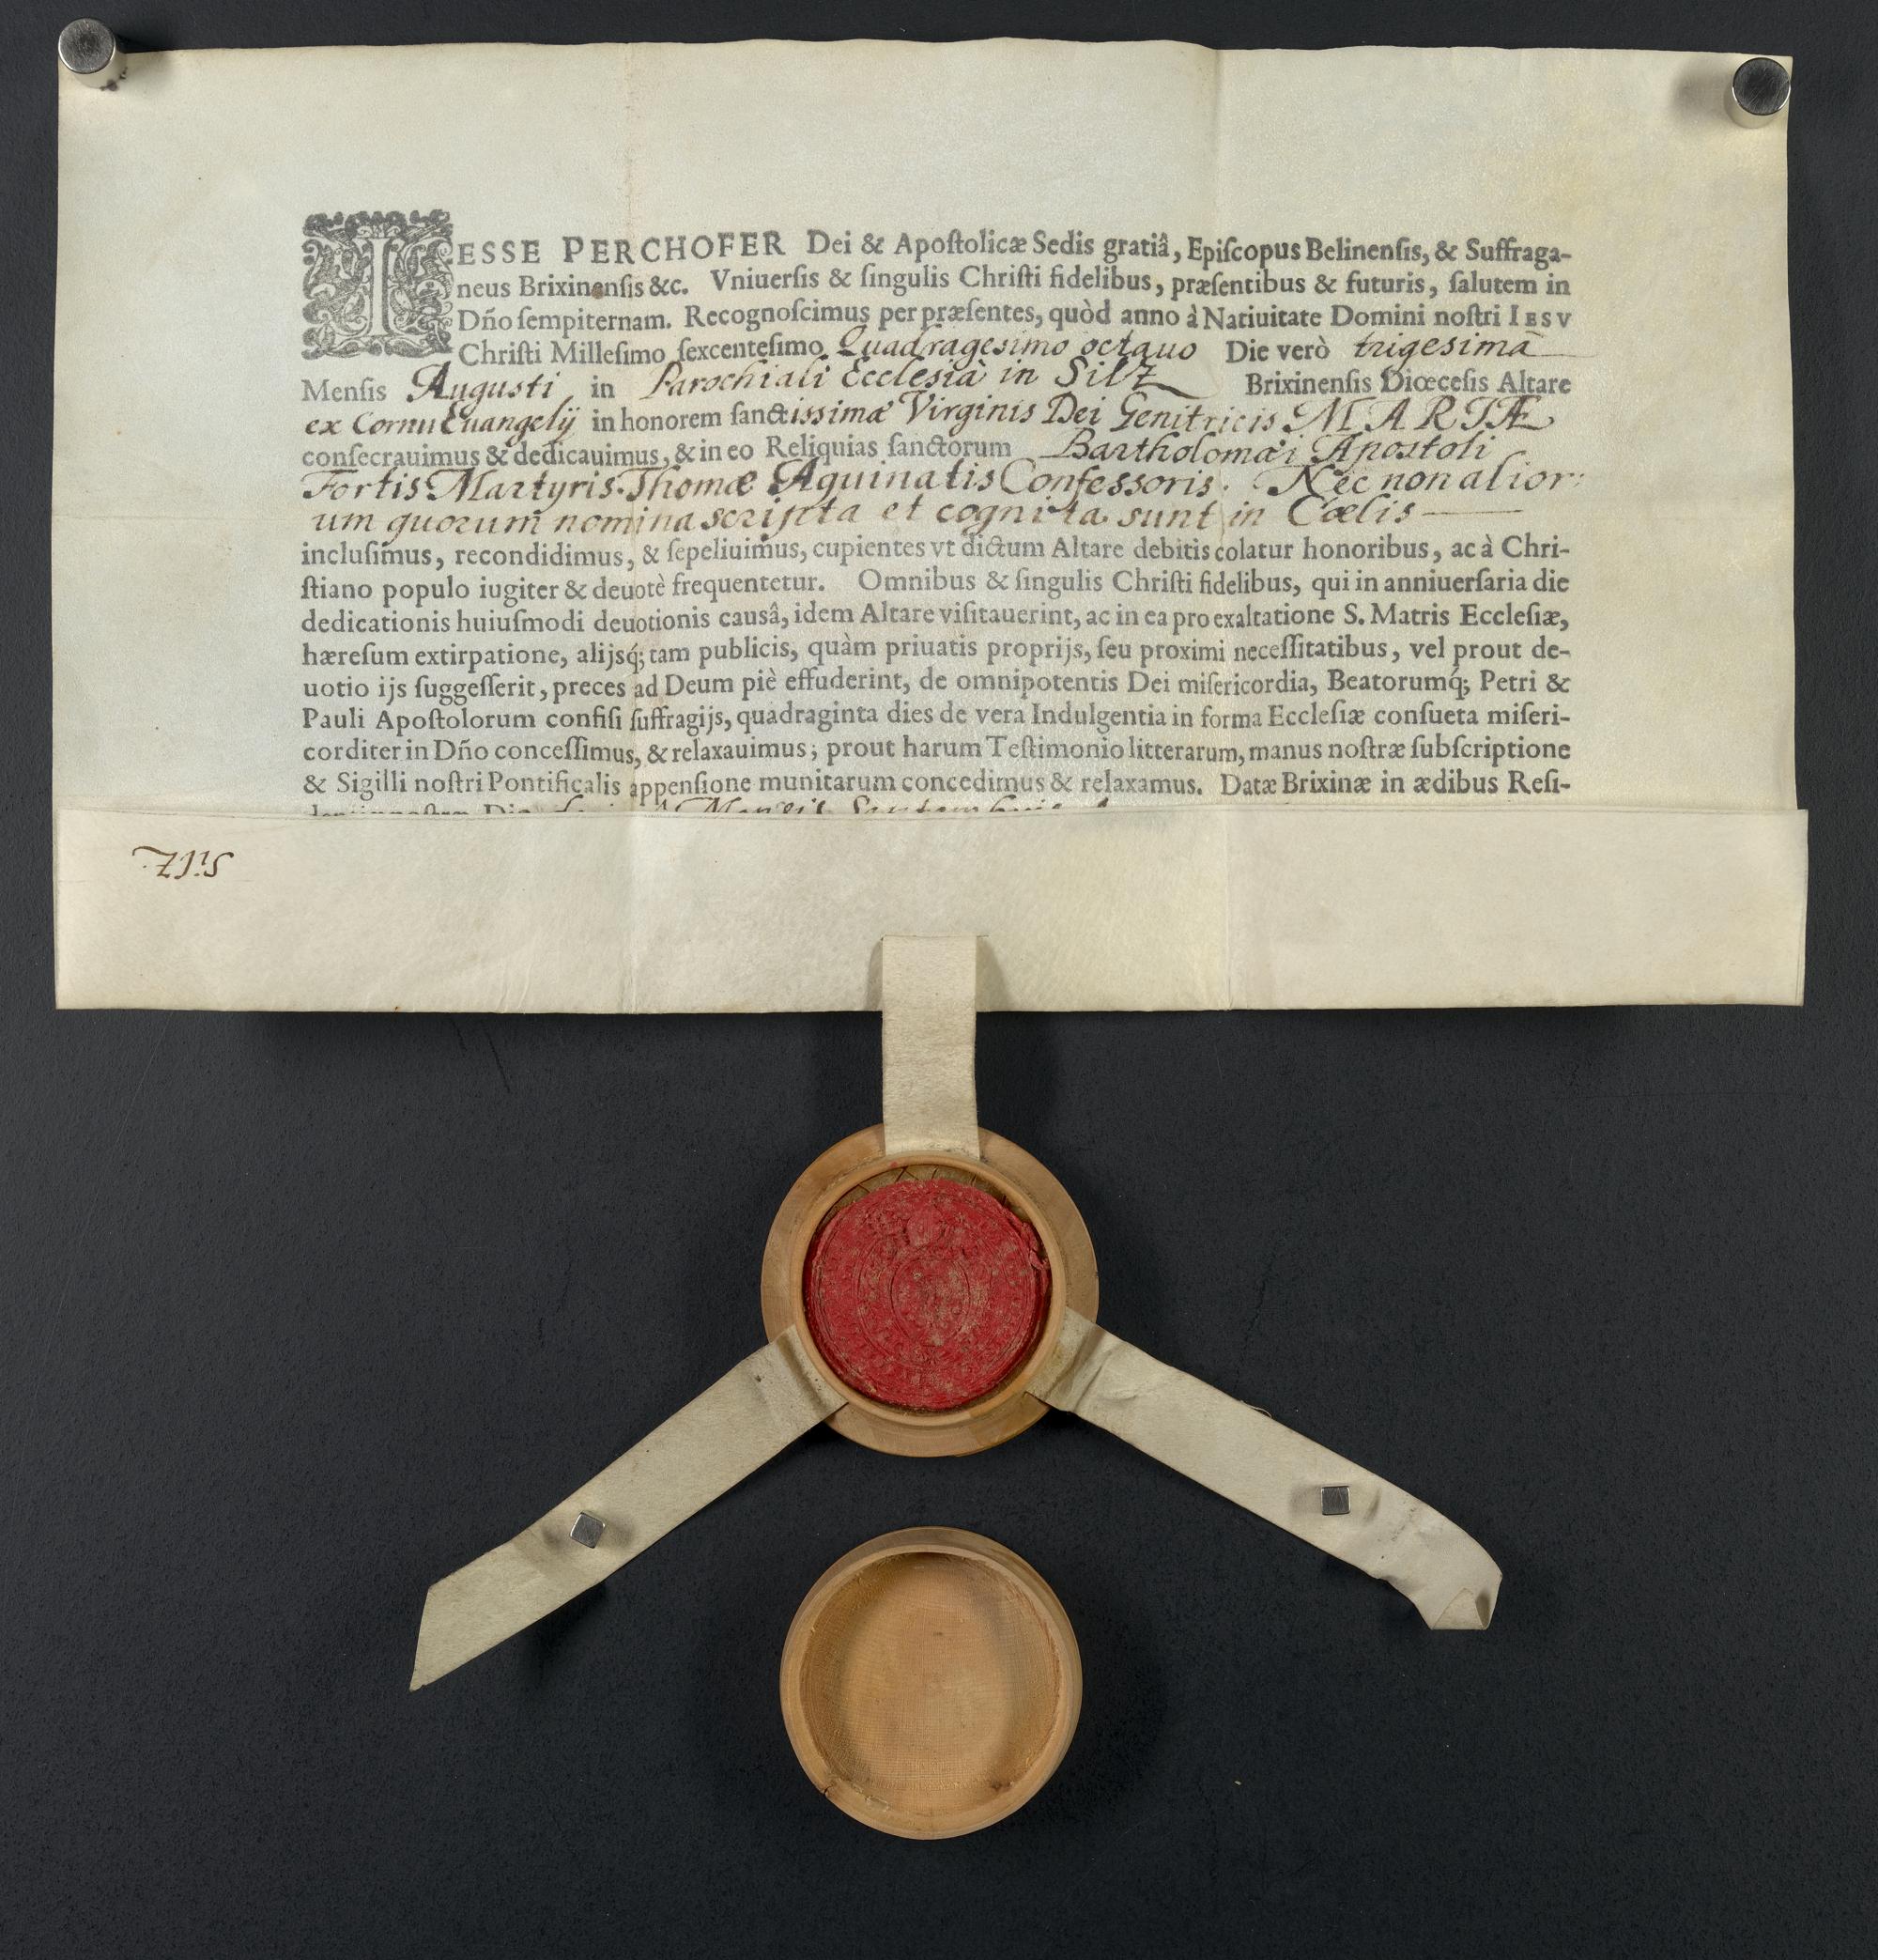 IESSE PERCHOFER Dei & Apoſtolicæ Sedis gratiâ, Epiſcopus Belinenſis, & Suffraga-
neus Brixinenſis &c. Vniuerſis & ſingulis Chriſti fidelibus, præſentibus & futuris, ſalutem in
Dño ſempiternam. Recognoſcimus per præſentes, quòd anno à Natiuitate Domini noſtri IESV
Chriſti Milleſimo ſexcenteſimo Quadragesimo octauo Die verò trigesima
Menſis Augusti in Parochiali Ecclesiâ in Silz Brixinenſis Diœceſis Altare
ex Cornu Euangelij in honorem ſanctissimæ Virginis Dei Genitricis MARIÆ
conſecrauimus & dedicauimus, & in eo Reliquias ſanctorum Bartholomæi Apostoli
Fortis Martyris. Thomæ Aquinatis Confessoris. Nec non alior:
um quorum nomina scripta et cognita sunt in Cœlis
incluſimus, recondidimus, & ſepeliuimus, cupientes vt dictum Altare debitis colatur honoribus, ac à Chri-
ſtiano populo iugiter & deuotè frequentetur. Omnibus & ſingulis Chriſti fidelibus, qui in anniuerſaria die
dedicationis huiuſmodi deuotionis causâ, idem Altare viſitauerint, ac in ea pro exaltatione S. Matris Eccleſiæ,
hæreſum extirpatione, alijsq́; tam publicis, quàm priuatis proprijs, ſeu proximi neceſſitatibus, vel prout de-
uotio ijs ſuggeſſerit, preces ad Deum piè effuderint, de omnipotentis Dei miſericordia, Beatorumq́; Petri &
Pauli Apoſtolorum confiſi ſuffragijs, quadraginta dies de vera Indulgentia in forma Eccleſiæ conſueta miſeri-
corditer in Dño conceſſimus, & relaxauimus; prout harum Teſtimonio litterarum, manus noſtræ ſubſcriptione
& Sigilli noſtri Pontificalis appenſione munitarum concedimus & relaxamus. Datæ Brixinæ in ædibus Reſi-
noſtræ Die Mensis Septembris
Silz.